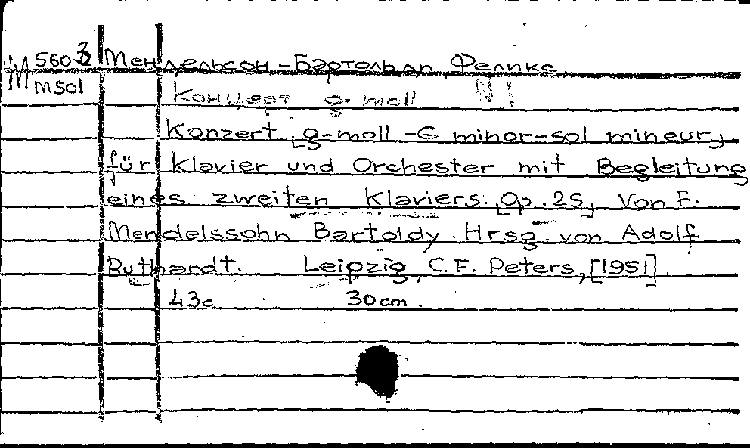 М 5603 Мендельсон-Бартольди Феликс
msol
Концерт g. moll N1
Konzert [g-moll - G minor-sol mineur]
für Klavier und Orchester mit Begleitung
eines zweiten Klaviers. [Op. 25] Von F.
Mendelssohn Bartoldy. Hrsg. von Adolf
Ruthardt. Leipzig, C.F. Peters, [1951].
43c 30cm.